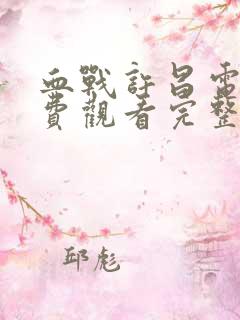 血戰許昌電
費觀看完整
邱彪